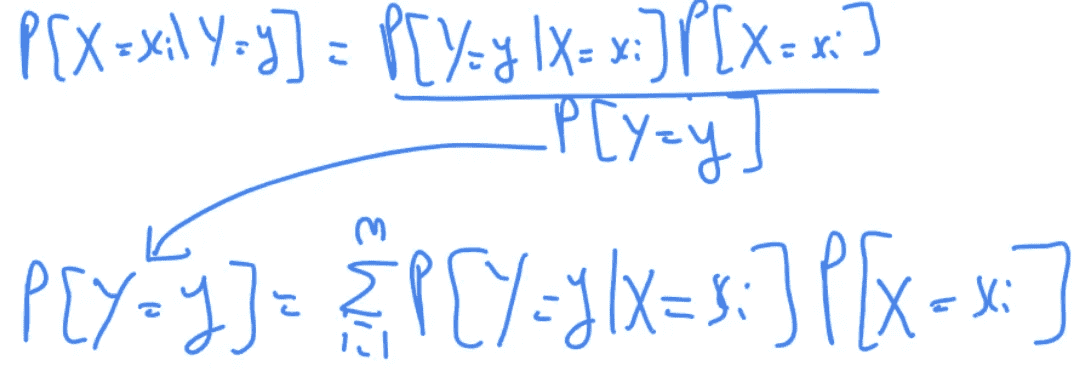 P[X=xi|Y=y] = P[Y=y|X=xi]P[X=xi]
P[Y=y]
P[Y=y] = m∑i=1 P[Y=y|X=xi]P[X=xi]